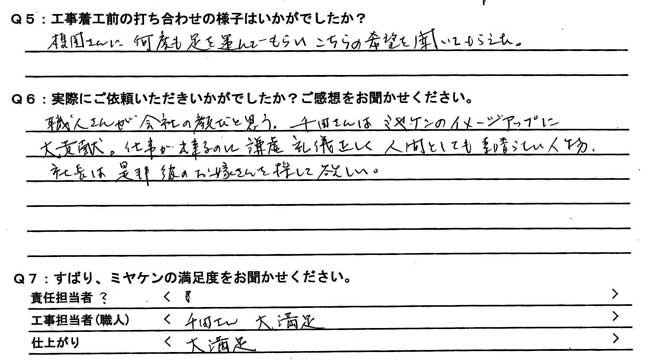 Q5：工事着工前の打ち合わせの様子はいかがでしたか？
根岸さんに 何度も足を運んでもらい こちらの希望を聞いてもらえた。
Q6：実際にご依頼いただきいかがでしたか？ご感想をお聞かせください。
職人さんが会社の顔だと思う。千田さんは ミヤケンのイメージアップに
大貢献。仕事が出来るのに 謙虚 礼儀正しく 人間としても素晴らしい人物。
社長は 是非 彼のお嫁さんを探して欲しい。
Q7：ずばり、ミヤケンの満足度をお聞かせください。
責任担当者 ？ ＜ ＞
工事担当者(職人) ＜ 千田さん 大満足 ＞
仕上がり ＜ 大満足 ＞